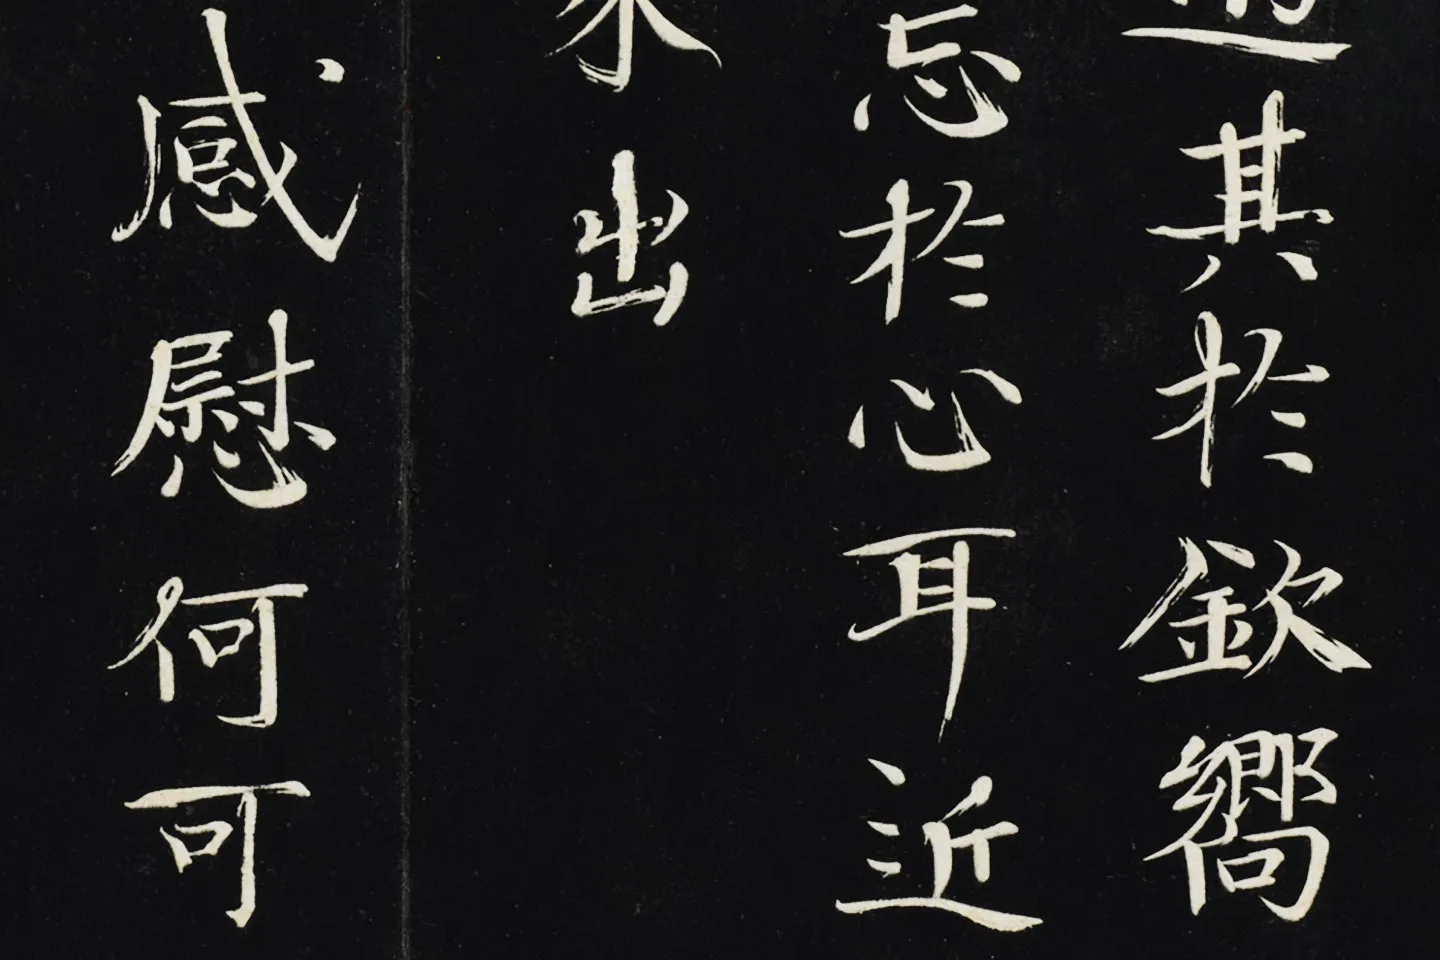 其於欽嚮
忘於心耳近
出
感慰何可